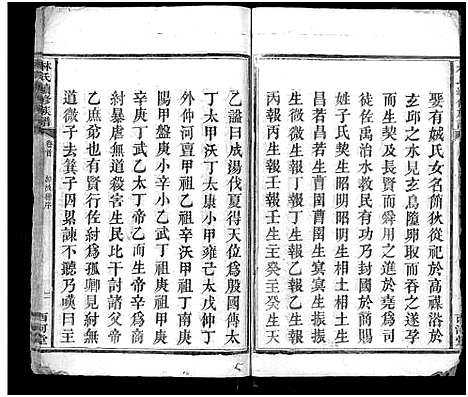 娶有娀氏女名簡狄從祀於高禖浴於
玄邱之水見玄鳥隨卵取而吞之遂孕
而生契及長而賢舜用之進於堯爲司
徒佐禹治水教民有功乃封國於商賜
姓子氏契生昭明昭明生相土相土生
昌若昌若生曹圉曹圉生冥冥生振振
生微報微報生報丁報丁生報乙報乙生報
丙報丙生主壬主壬生主癸主癸生天
乙諡曰成湯伐夏得天位爲殷國傳太
丁太甲沃丁太康小甲雍己太戊仲丁
外仲河亶甲祖乙祖辛沃甲祖丁南庚
陽甲盤庚小辛小乙武丁祖庚祖甲廩
辛庚丁武乙太丁帝乙而生帝辛帝辛
紂暴虐無道殺害生民比干討諸父帝
乙庶爺也有賢行佐紂爲孤卿見紂無
道微子去箕子囚累諫不聽乃嘆曰主
林氏續修族譜
卷首
西河堂